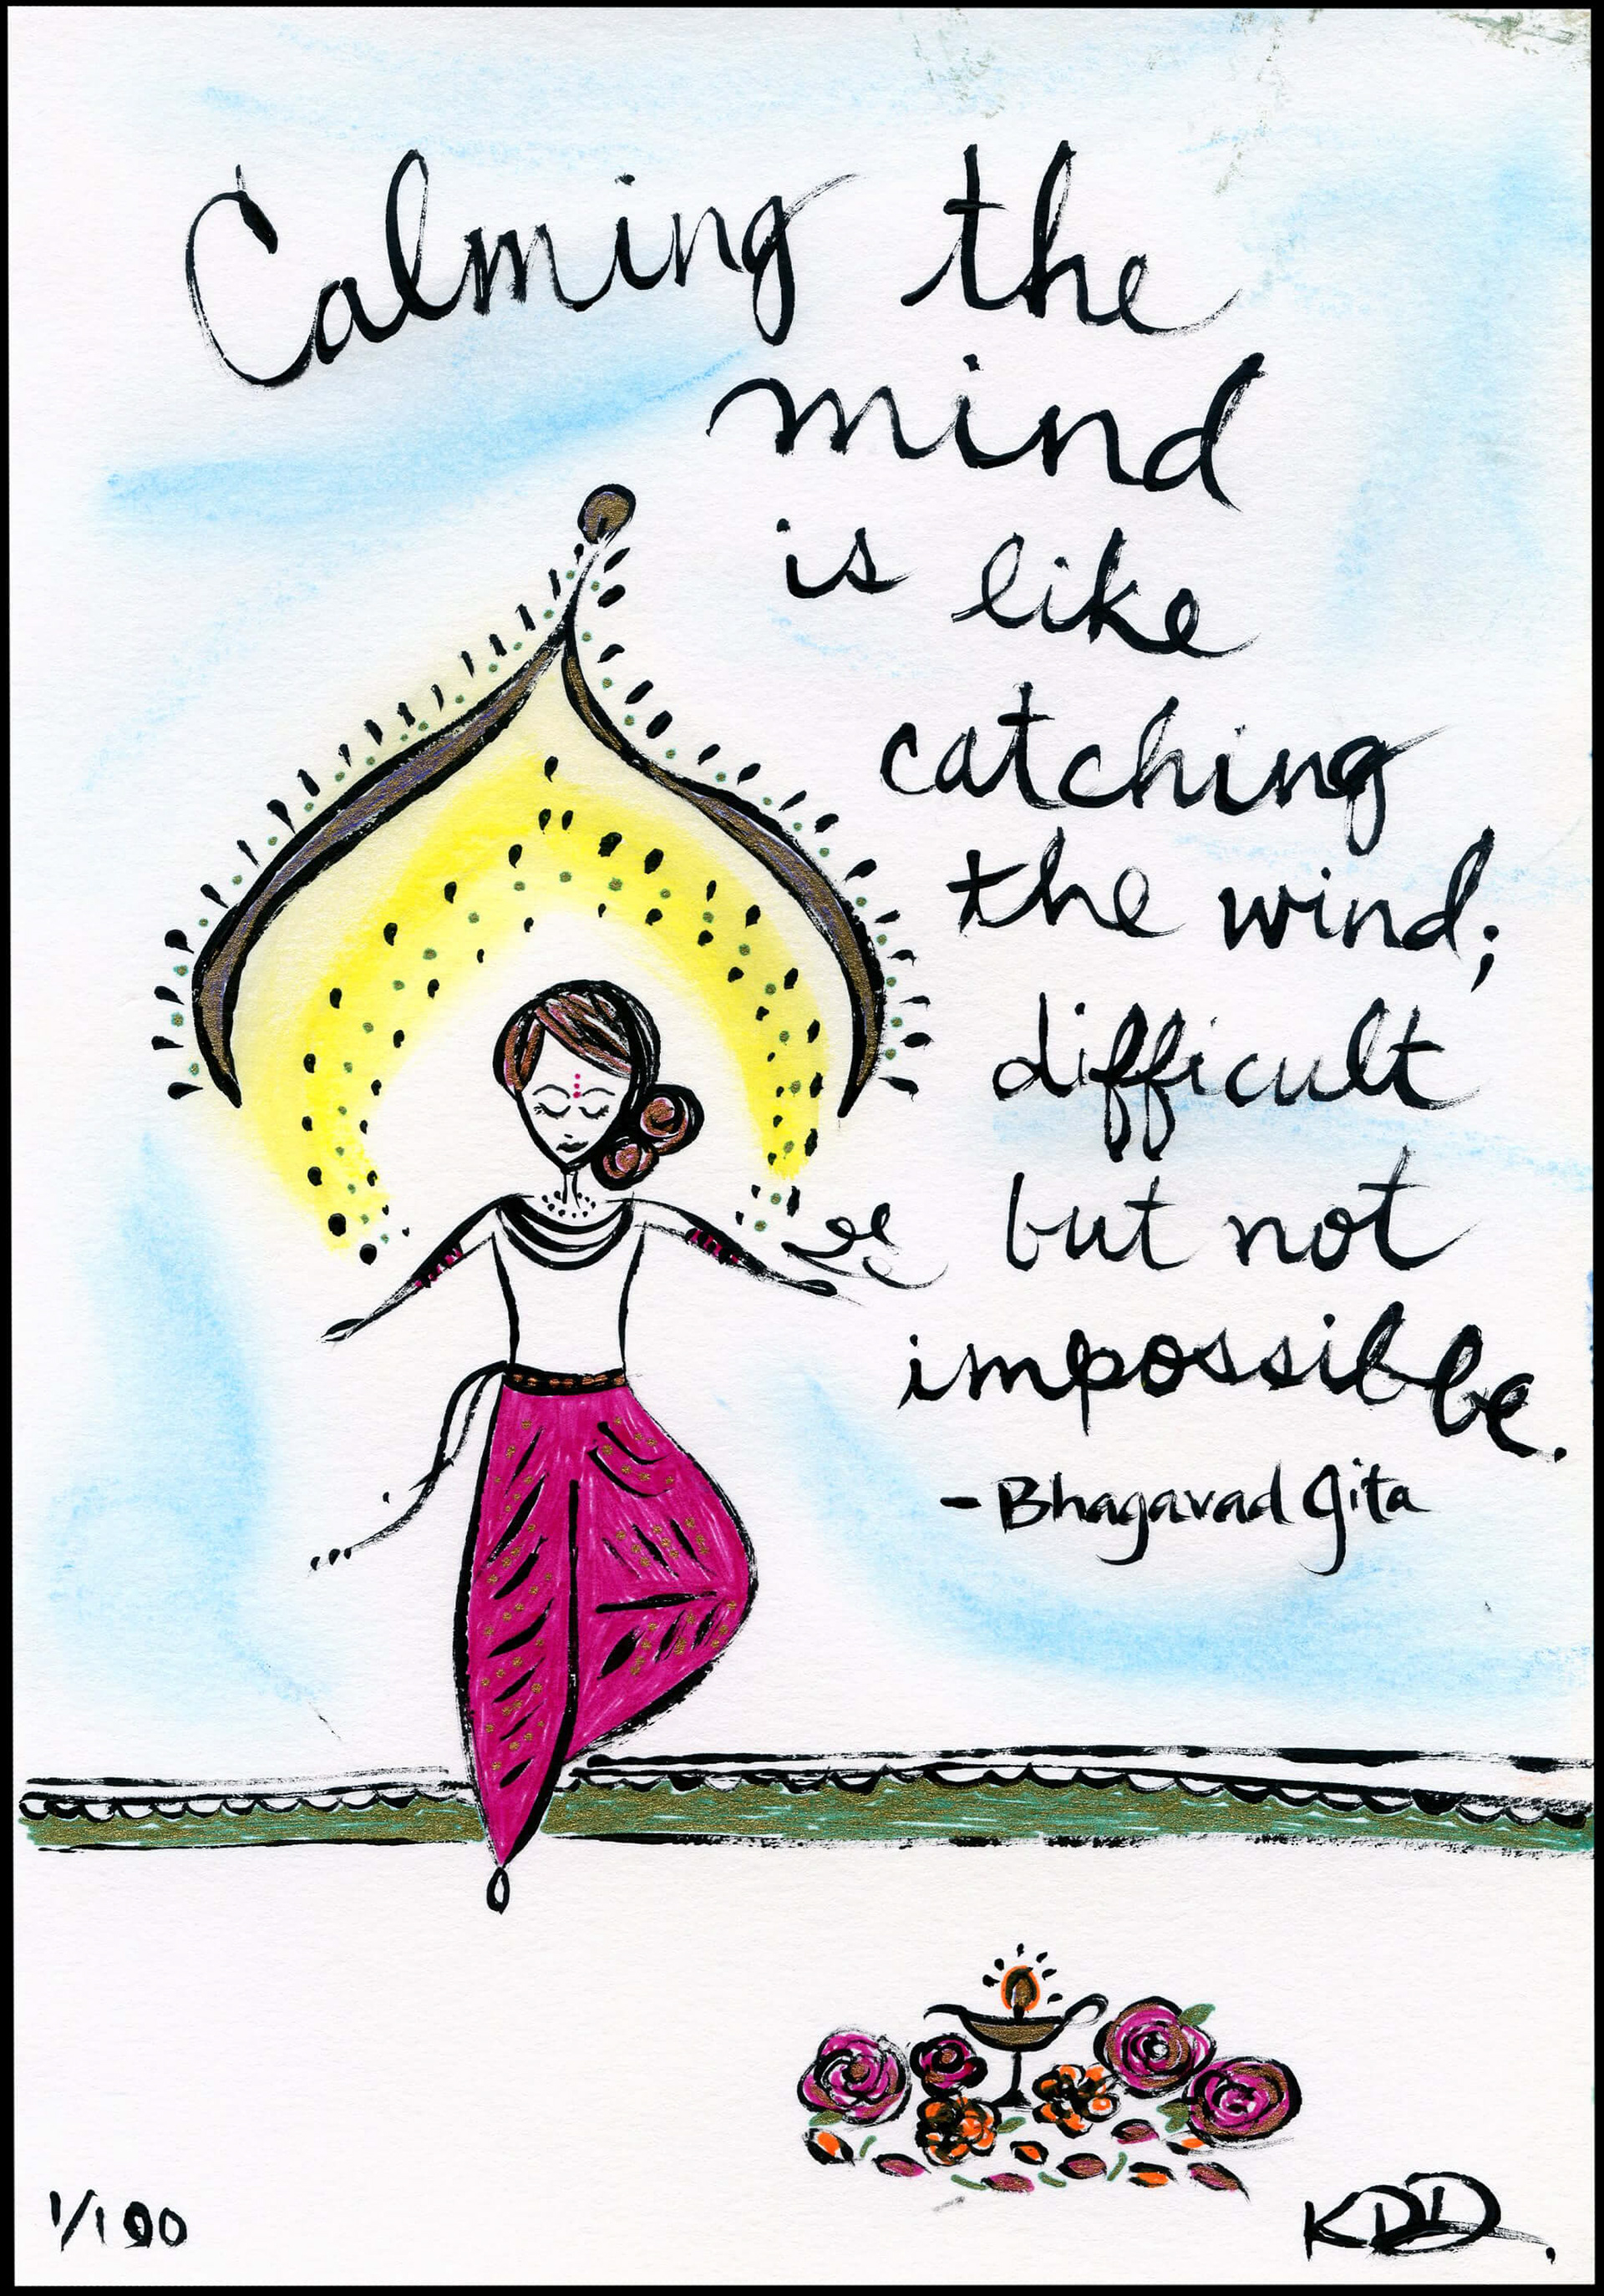 Calming the
mind
is like
catching
the wind;
difficult
but not
impossible.
- Bhagavad Gita
1/100
KDD.